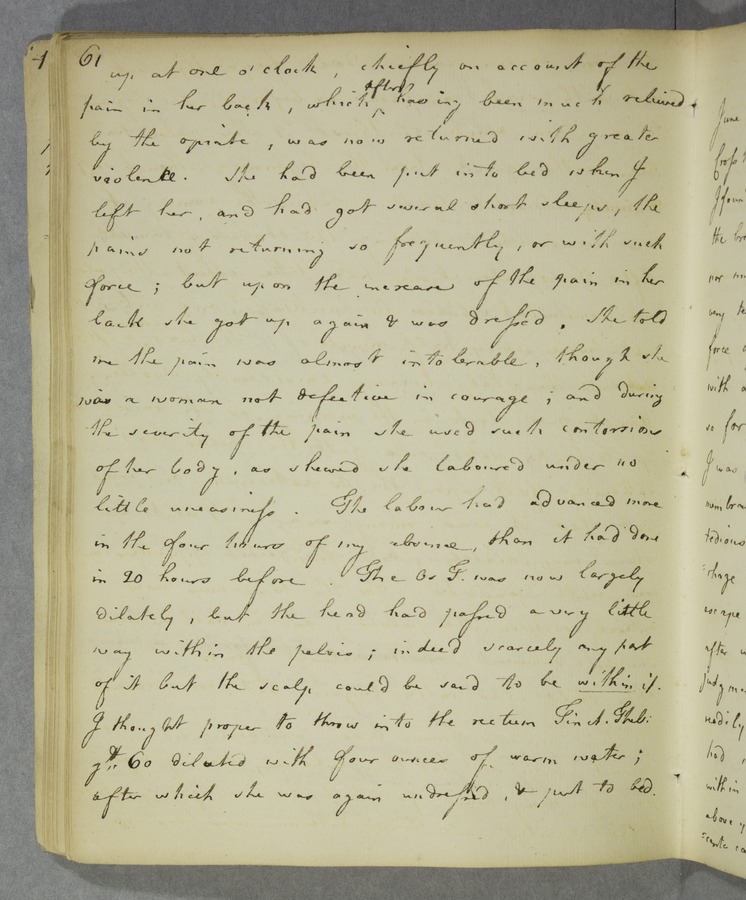 61
up at one o'clock, chiefly on account of the
pain in her back, which after having been much relieved
by the opiate, was now returned with greater
violence. She had been put into bed when I
left her, and had got several short sleeps, the
pains not returning so frequently, or with such
force; but upon the increase of the pain in her
back she got up again & was dressed. She told
me the pain was almost intolerable, though she
was a woman not defective in courage; and during
the severity of the pain she used such contorsions
of her body, as shewed she laboured under no
little uneasiness. The labour had advanced more
in the four hours of my absence, than it had done
in 20 hours before. The Os T. was now largely
dilately, but the head had passed a very little
way within the pelvis; indeed scarcely any part
of it but the scalp could be said to be within it.
I thought proper to throw into the rectum Tinct. Theb:
gtt. 60 diluted with four ounces of warm water;
after which she was again undressed, & put to bed.
June
the
nor
any
force
with a
so far
I was
membran
tedious
escape
after
judgme
readily
had
within
above